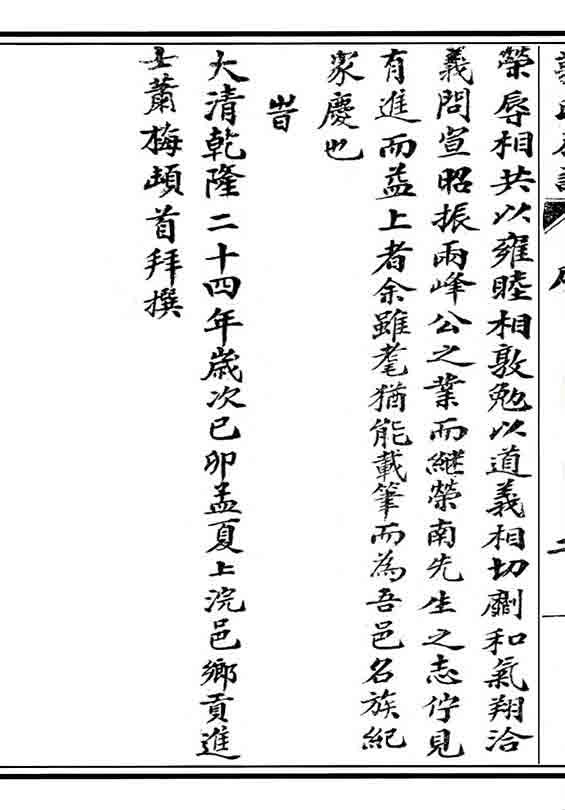 榮辱相共以雍睦相敦勉以道義相切劘和氣翔洽
義問宣昭振兩峰公之業而繼榮南先生之志佇見
有進而益上者余雖耄猶能載筆而為吾邑名族紀
家慶也
旹
大清乾隆二十四年歲次己卯孟夏上浣邑鄉貢進
士蕭梅頓首拜撰